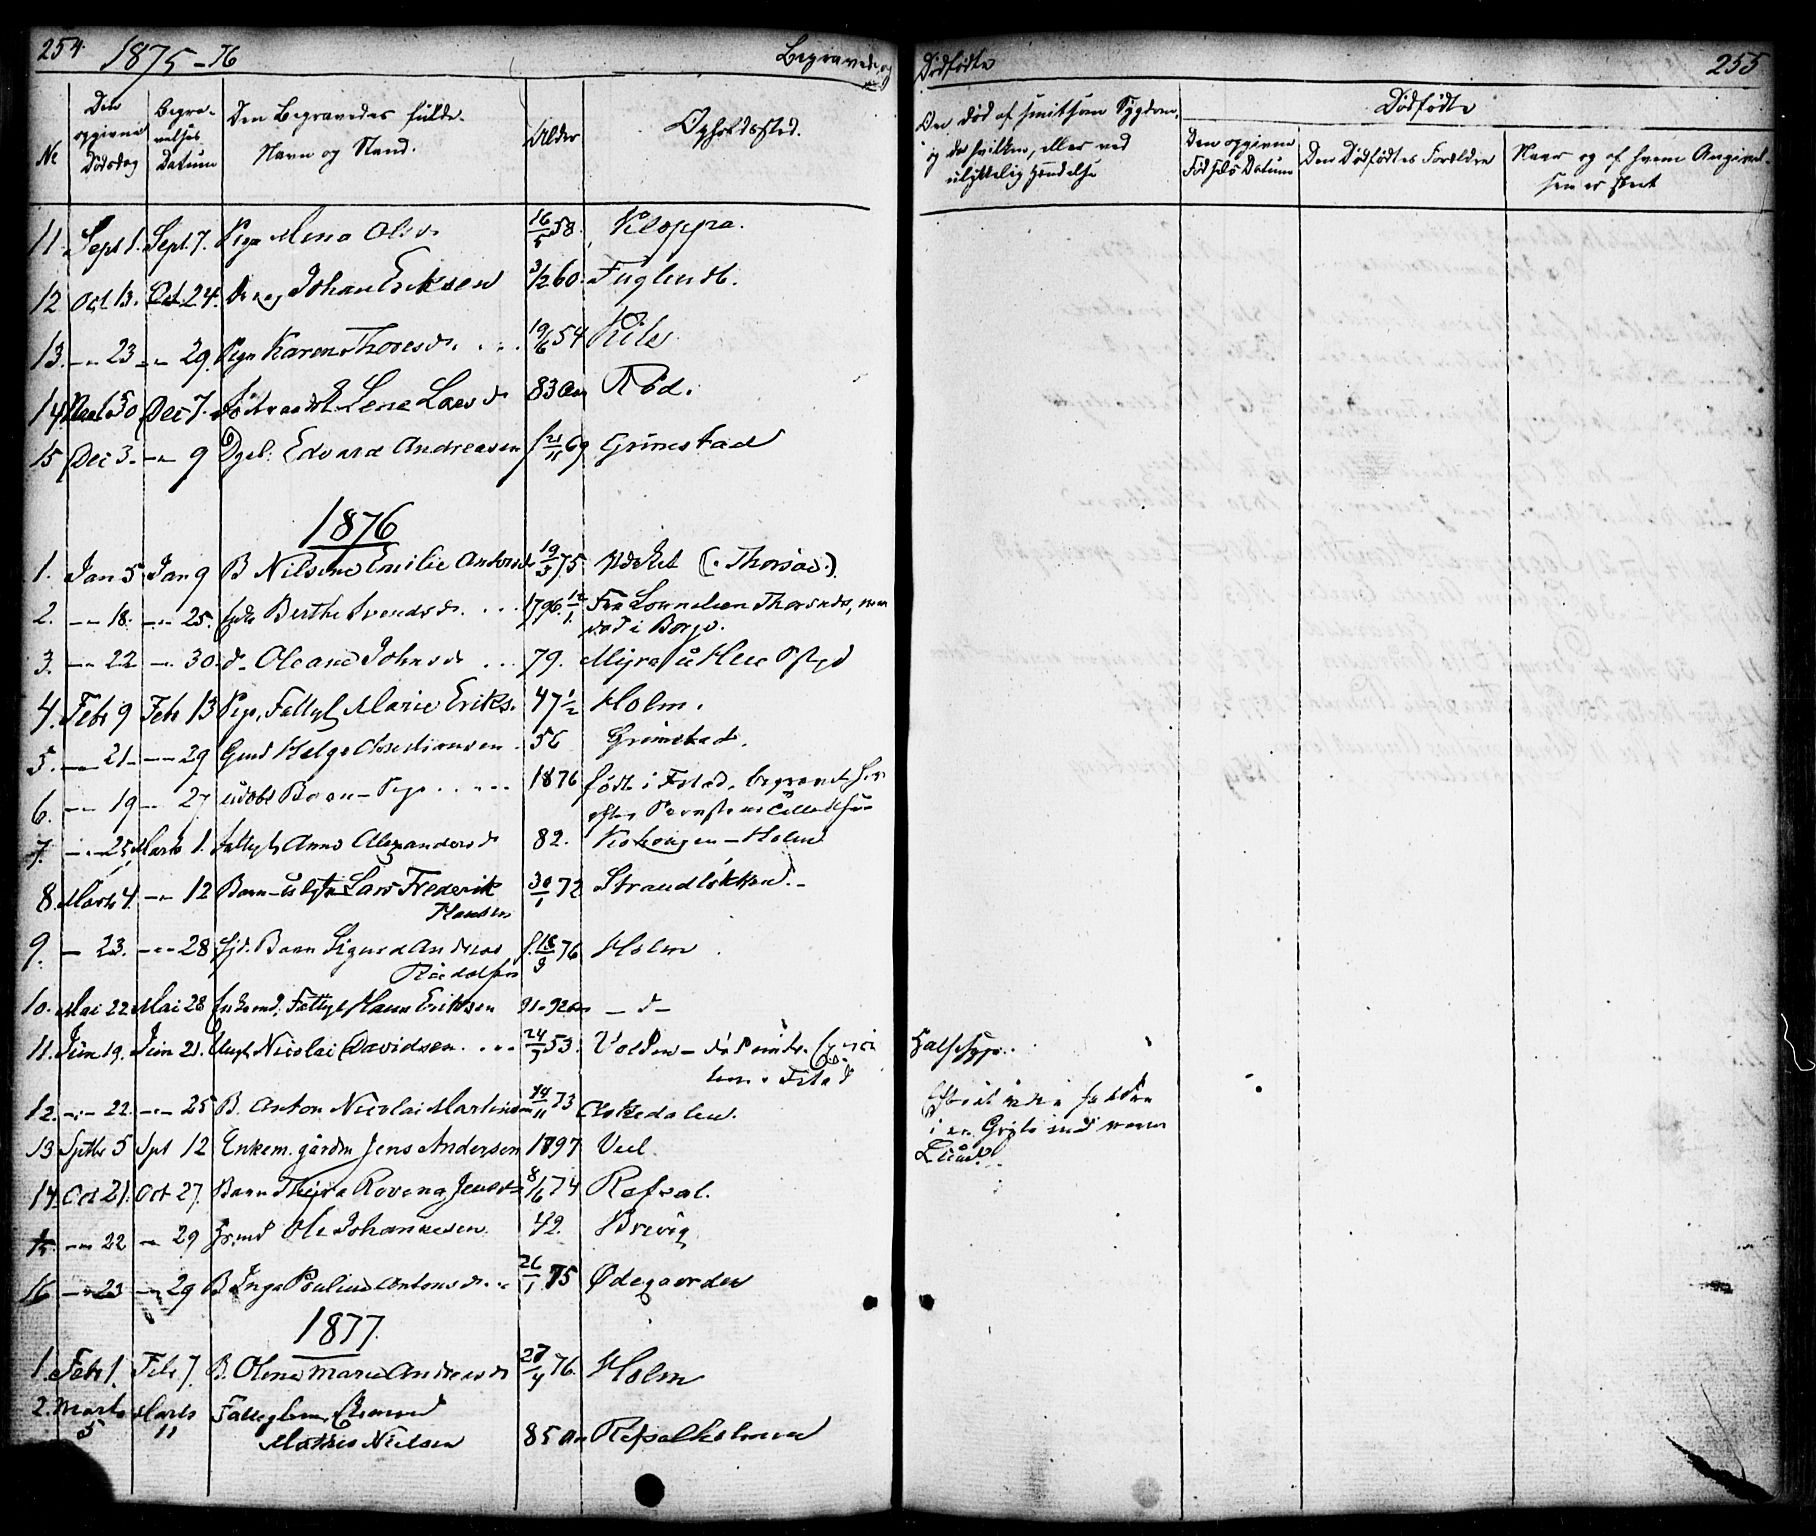 254. 1875-76 Begravede og
Dødfødte 255
No
Den opgivne Dødsdag
Begravelses Datum
Den Begravedes fulde Navn og Stand.
Alder
Opholdssted.
Om død af smitsom Sygdom, og da hvilken, eller ved ulykkelig Hændelse
Dødfødte
Den opgivne Fødsels Datum
Den Dødfødtes Forældre
Naar og af hvem Angivelsen er skeet
11. Sept 1. Sept. 7. Pige Mena Olsd 16/5 58. Kloppa.
12 Oct. 13. Oct. 24. Johan Eriksen 3/2 60. Fuglevik.
13. -"- 23 -"- 29. Pige Karen Thoresd. 19/6 54 Kile
14. 30 Dec 7. Lene Larsd 83 Aar Röd.
15 Dec 3. -"- 9 Edvard Andreasen f 21/11 69 Grimestad
1876
1. Jan 5 Jan 9 B Nilsine Emilie Antonsd 19/5 75. (: Thorsöe :)
2. -"- 18. -"- 25. Enke Berthe Svendsd. 1796 12/1 Fra Thorsøe,
i Borge.
3. -"- 22 -"- 30. d- Oleane Johnsd 79. Myra
4. Febr 9 Febr 13 Pige, Fattigl Marie Eriks. 47 1/2 Holm.
5. -"- 21. -"- 29 Gmd Helge Christiansen 56 Grimstad.
6. -"- 19 -"- 27 udøbt Barn - Pige 1876 født i Fstad, begravet her
efter
7. -"- 25. Marts 1. Fattigl Anne Alexandersd 82. Holm
8. Marts 4. -"- 12 Barn Lars Frederik
Hansen 30/1 72 Strandløkken.
9. - 23. -"- 28 Gjd. Barn Sigurd Andreas
Rudolfsen f. 18/3 76 Holm
10. Mai 22 Mai 28 Enkemd. Fattigl Hans Eriksen 91-92 Aar - d -
11. Juni 19. Juni 21. Ungk Nicolai Davidsen. 24/5 53. Volden - Halssyge.
i Fstad
12. -"- 22. -"- 25 B. Anton Nicolai Martinsen 14/11 73 Askedalen.
i en Gryte med varm
Lud.
13 Septbr 5 Spt 12 Enkem. gårdm Jens Andersen 1797 Veel.
14. Oct 21. Oct 27. Barn Thyra Rovena Jensd 8/6 74 Rafsal.
15. -"- 22 -"- 29 Grmd Ole Johannesen. 42. Brevig
16 -"- 23 -"- 29 B Inga Pauline Antonsd. 26/1 75 Ødegaarden
1877.
1. Febr 1. Febr 7. B. Olena Marie Andreasd 27/4 76. Holm
2. Marts 5 Marts 11 Fattiglem,
Mathis Nielsen 85 Aar Refsalholmen